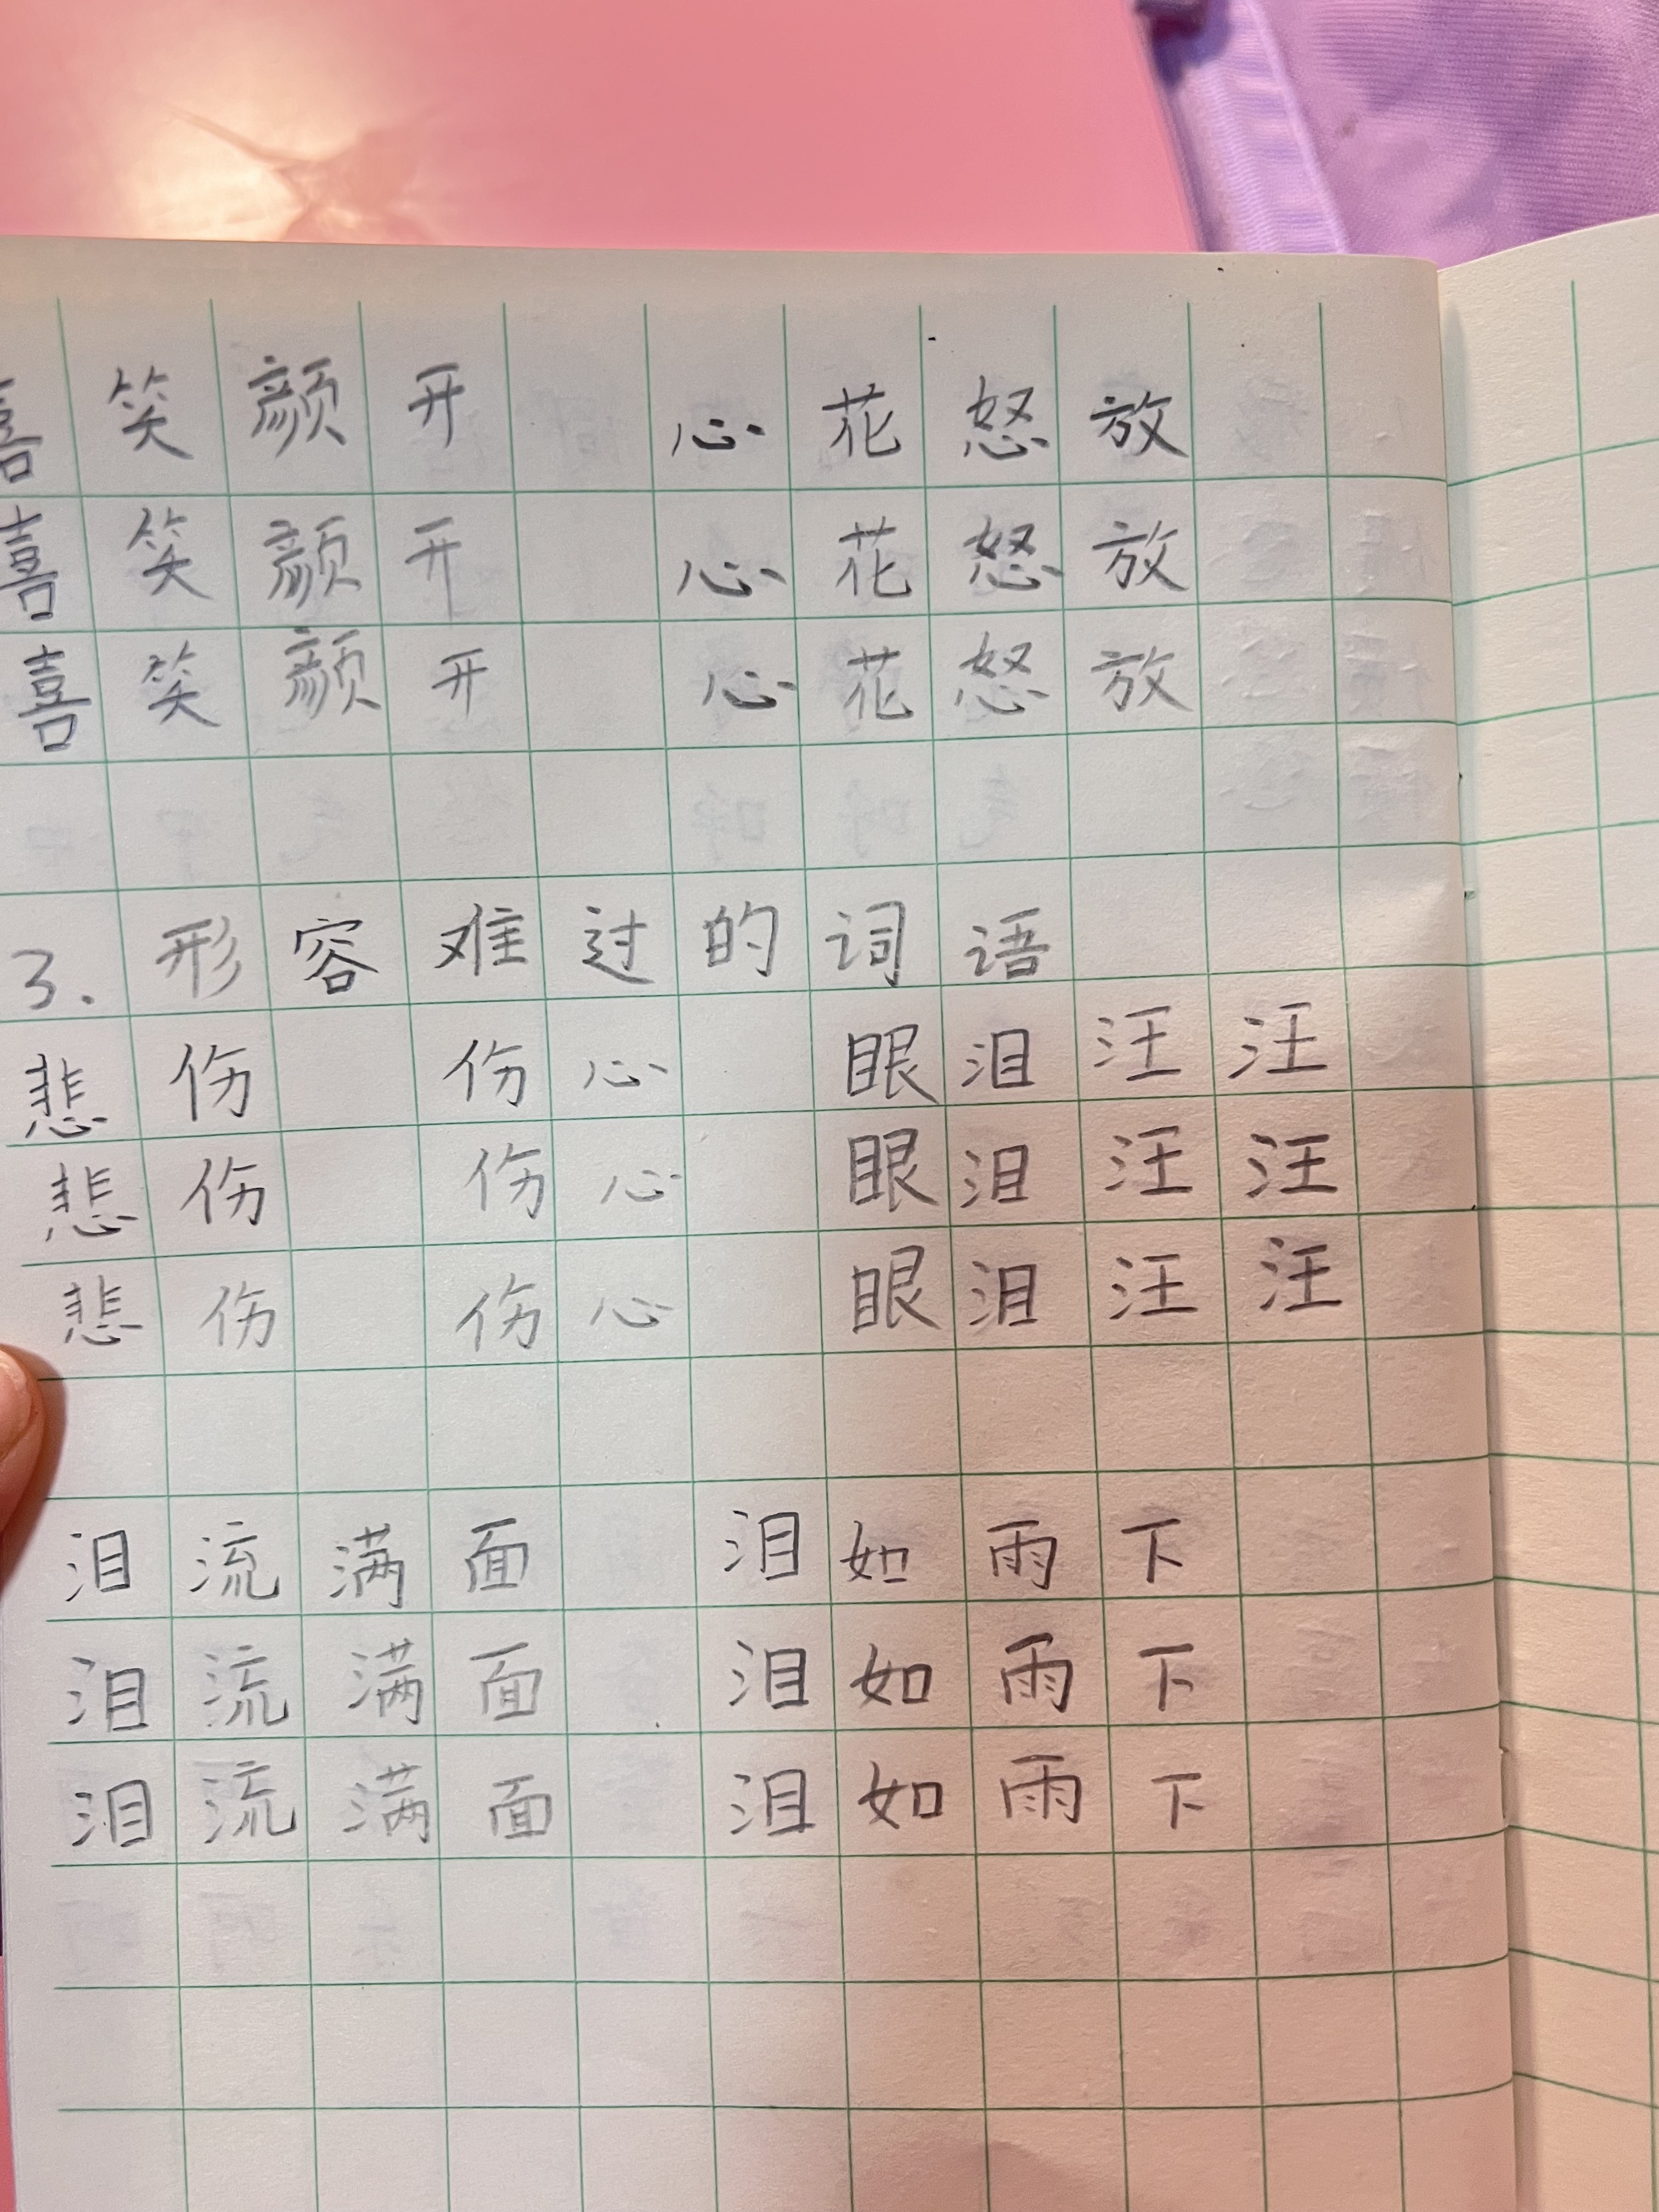 喜笑颜开 心花怒放
喜笑颜开 心花怒放
喜笑颜开 心花怒放
3. 形容难过的词语
悲伤 伤心 眼泪汪汪
悲伤 伤心 眼泪汪汪
悲伤 伤心 眼泪汪汪
泪流满面 泪如雨下
泪流满面 泪如雨下
泪流满面 泪如雨下